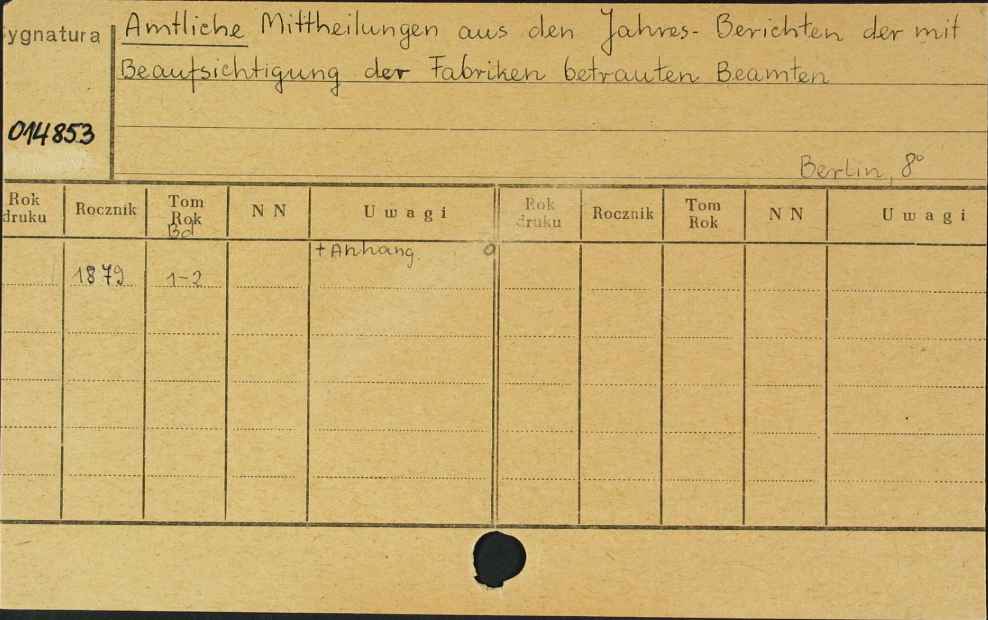 Sygnatura
Amtliche Mittheilungen aus den Jahres-Berichten der mit
Beaufsichtigung der Fabriken betrauten Beamten
014853
Berlin, 8°
Rok druku Rocznik Tom Rok Bd NN Uwagi Rok druku Rocznik Tom Rok NN Uwagi
+Anhang
1879 1-2